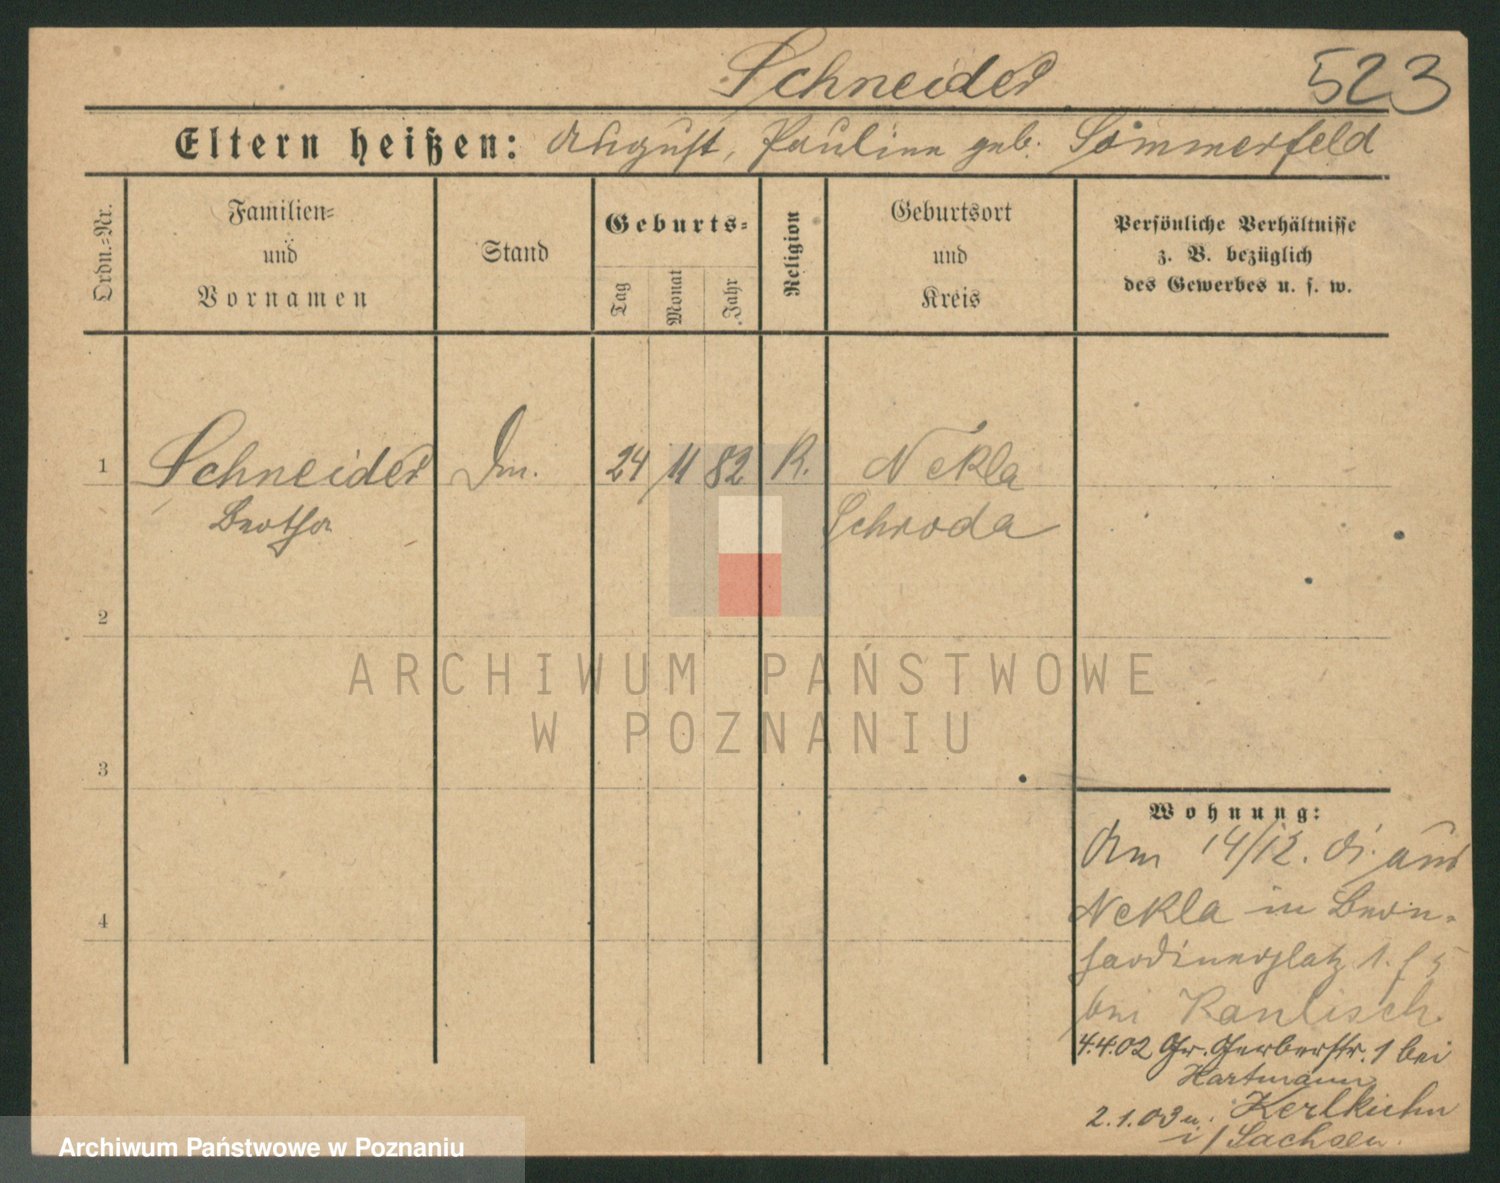 Schneider 523
Eltern heißen: August, Pauline geb. Sommerfeld
Ordn.=Nr.
Familien=
und
Vornamen
Stand
Geburts=
Tag
Monat
Jahr
Religion
Geburtsort
und
Kreis
Persönliche Verhältnisse
z. B. bezüglich
des Gewerbes u. s. w.
1 Schneider 24 11 82 K. Nekla
Bertha Schroda
2
3
4
Wohnung:
Am 14/12. aus
Nekla in Bern=
hardinerplatz 1.
bei
4.4.02 Gr. Gerberstr. 1 bei
Hartmann
2.1.03 n.
i/Sachsen.
ARCHIWUM PAŃSTWOWE
W POZNANIU
Archiwum Państwowe w Poznaniu